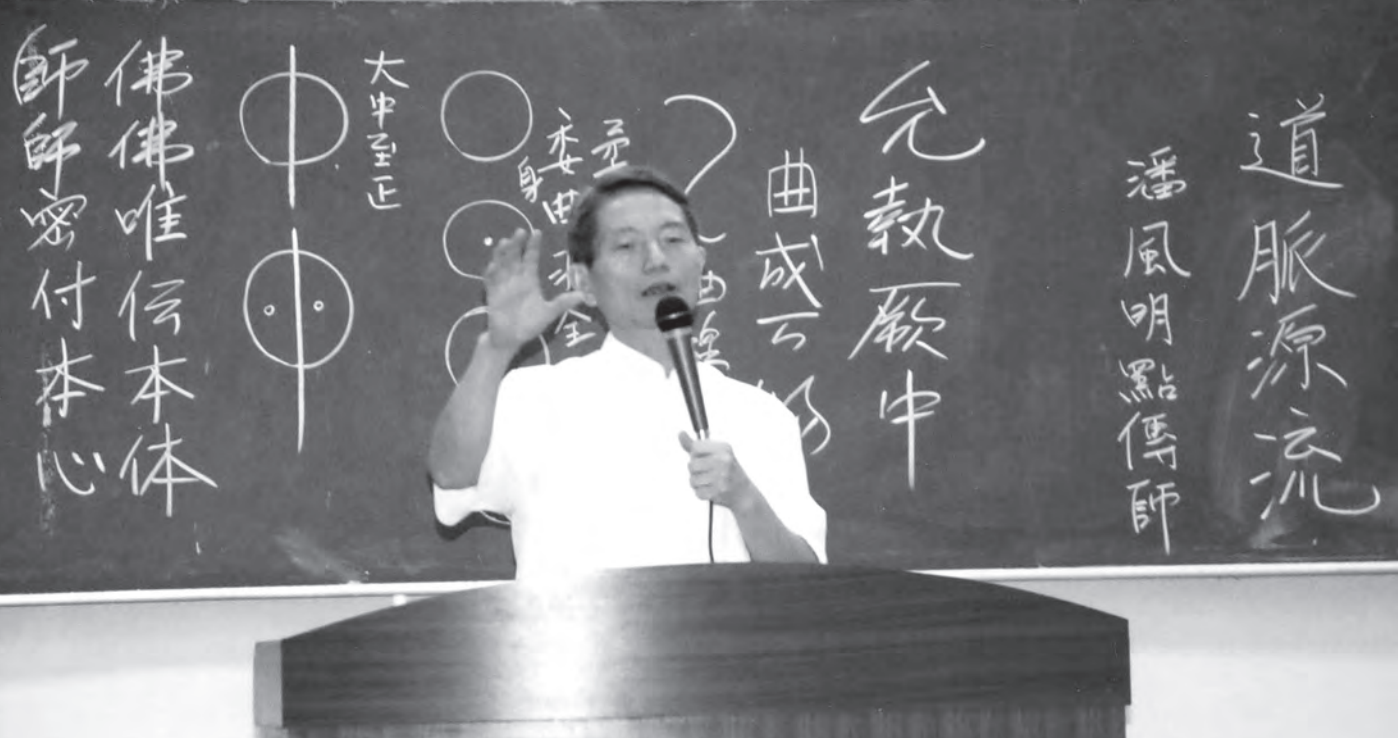 道脈源流
潘風明點傳師
允執厥中
曲成万
委曲
身
大中至正
佛佛唯伝本体
師師密付本心